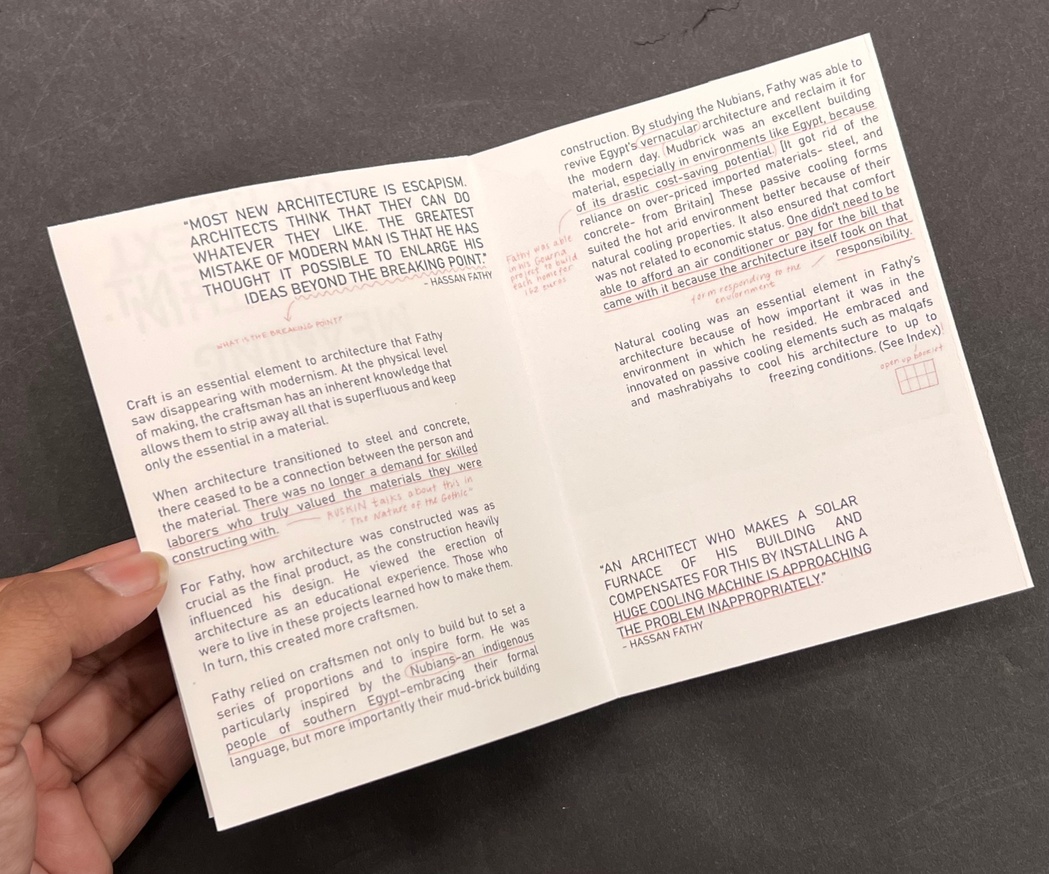 "MOST NEW ARCHITECTURE IS ESCAPISM.
ARCHITECTS THINK THAT THEY CAN DO
WHATEVER THEY LIKE. THE GREATEST
MISTAKE OF MODERN MAN IS THAT HE HAS
THOUGHT IT POSSIBLE TO ENLARGE HIS
IDEAS BEYOND THE BREAKING POINT."
- HASSAN FATHY
WHAT IS THE BREAKING POINT?
Craft is an essential element to architecture that Fathy
saw disappearing with modernism. At the physical level
of making, the craftsman has an inherent knowledge that
allows them to strip away all that is superfluous and keep
only the essential in a material.
When architecture transitioned to steel and concrete,
there ceased to be a connection between the person and
the material. There was no longer a demand for skilled
laborers who truly valued the materials they were
constructing with.
RUSKIN talks about this in
"The Nature of the Gothic"
For Fathy, how architecture was constructed was as
crucial as the final product, as the construction heavily
influenced his design. He viewed the erection of
architecture as an educational experience. Those who
were to live in these projects learned how to make them.
In turn, this created more craftsmen.
Fathy relied on craftsmen not only to build but to set a
series of proportions and to inspire form. He was
particularly inspired by the Nubians–an indigenous
people of southern Egypt–embracing their formal
language, but more importantly their mud-brick building
construction. By studying the Nubians, Fathy was able to
revive Egypt's vernacular architecture and reclaim it for
the modern day. Mudbrick was an excellent building
material, especially in environments like Egypt, because
of its drastic cost-saving potential. [It got rid of the
reliance on over-priced imported materials- steel, and
concrete- from Britain] These passive cooling forms
suited the hot arid environment better because of their
natural cooling properties. It also ensured that comfort
was not related to economic status. One didn't need to be
able to afford an air conditioner or pay for the bill that
came with it because the architecture itself took on that
responsibility.
Fathy was able
in his Gourna
project to build
each home for
162 euros
form responding to the
enviornment
Natural cooling was an essential element in Fathy's
architecture because of how important it was in the
environment in which he resided. He embraced and
innovated on passive cooling elements such as malqafs
and mashrabiyahs to cool his architecture to up to
freezing conditions. (See Index)
open up booklet
"AN ARCHITECT WHO MAKES A SOLAR
FURNACE OF HIS BUILDING AND
COMPENSATES FOR THIS BY INSTALLING A
HUGE COOLING MACHINE IS APPROACHING
THE PROBLEM INAPPROPRIATELY."
- HASSAN FATHY